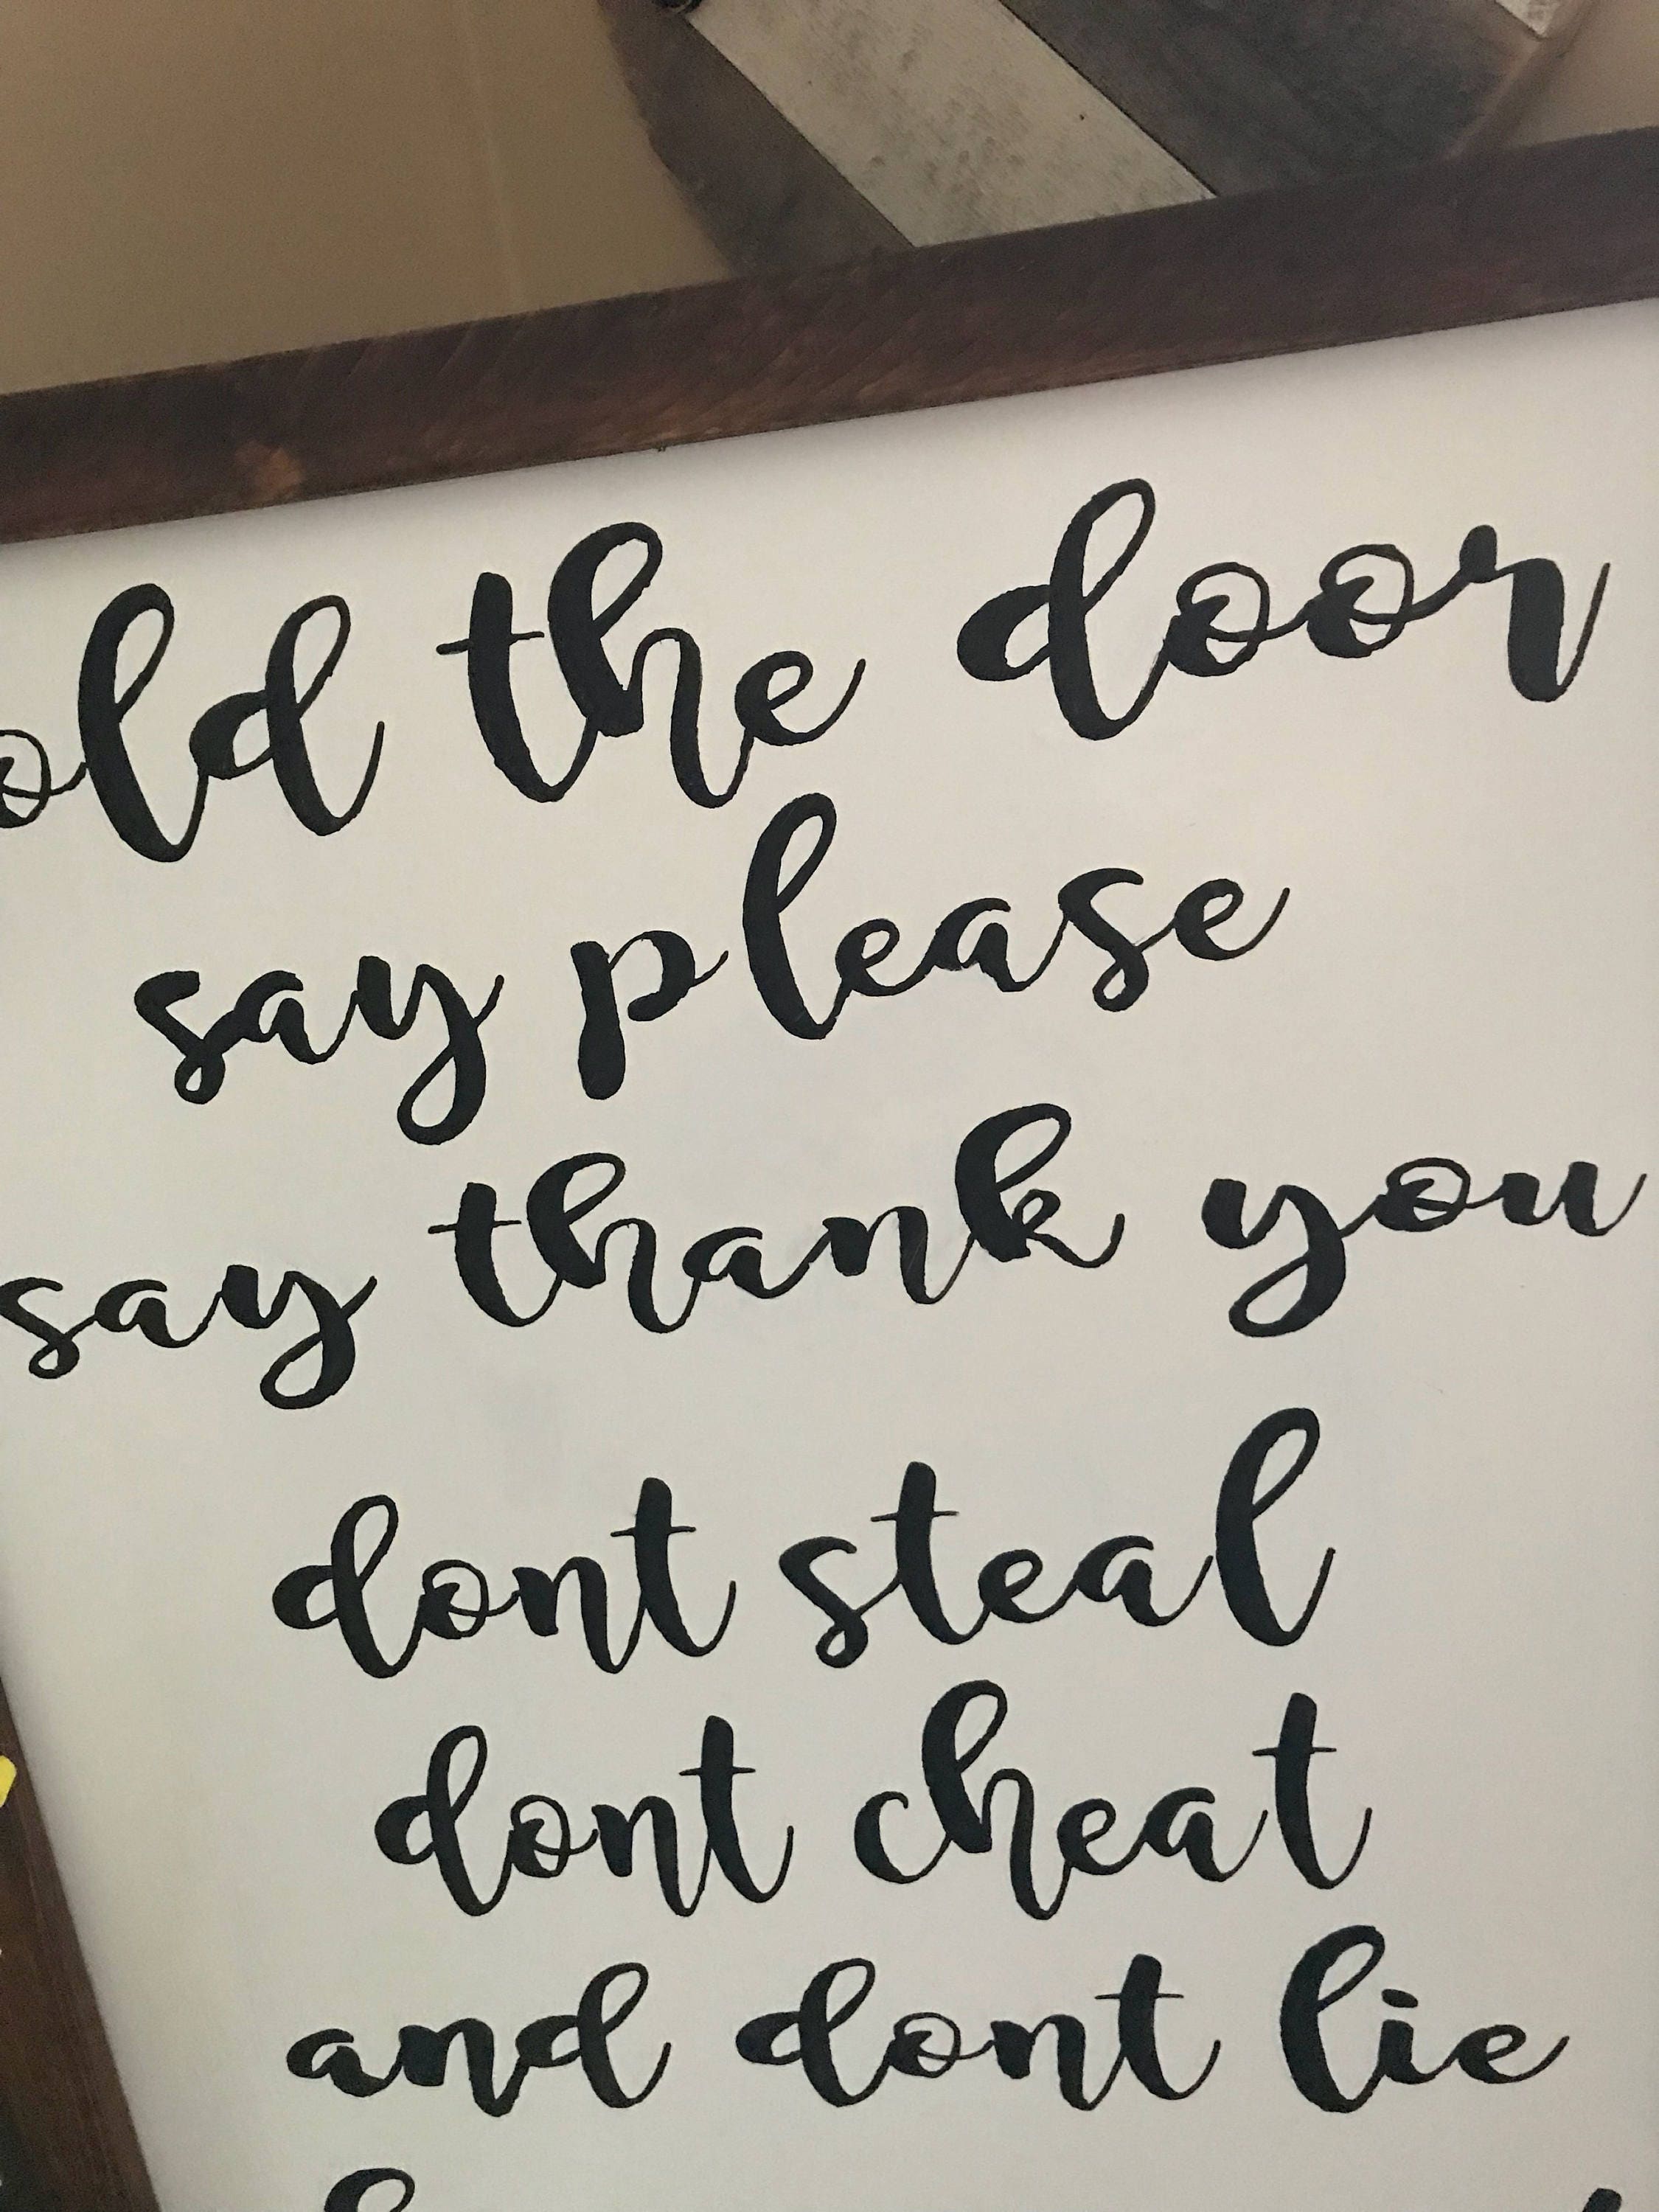 old the door
say please
say thank you
dont steal
dont cheat
and dont lie